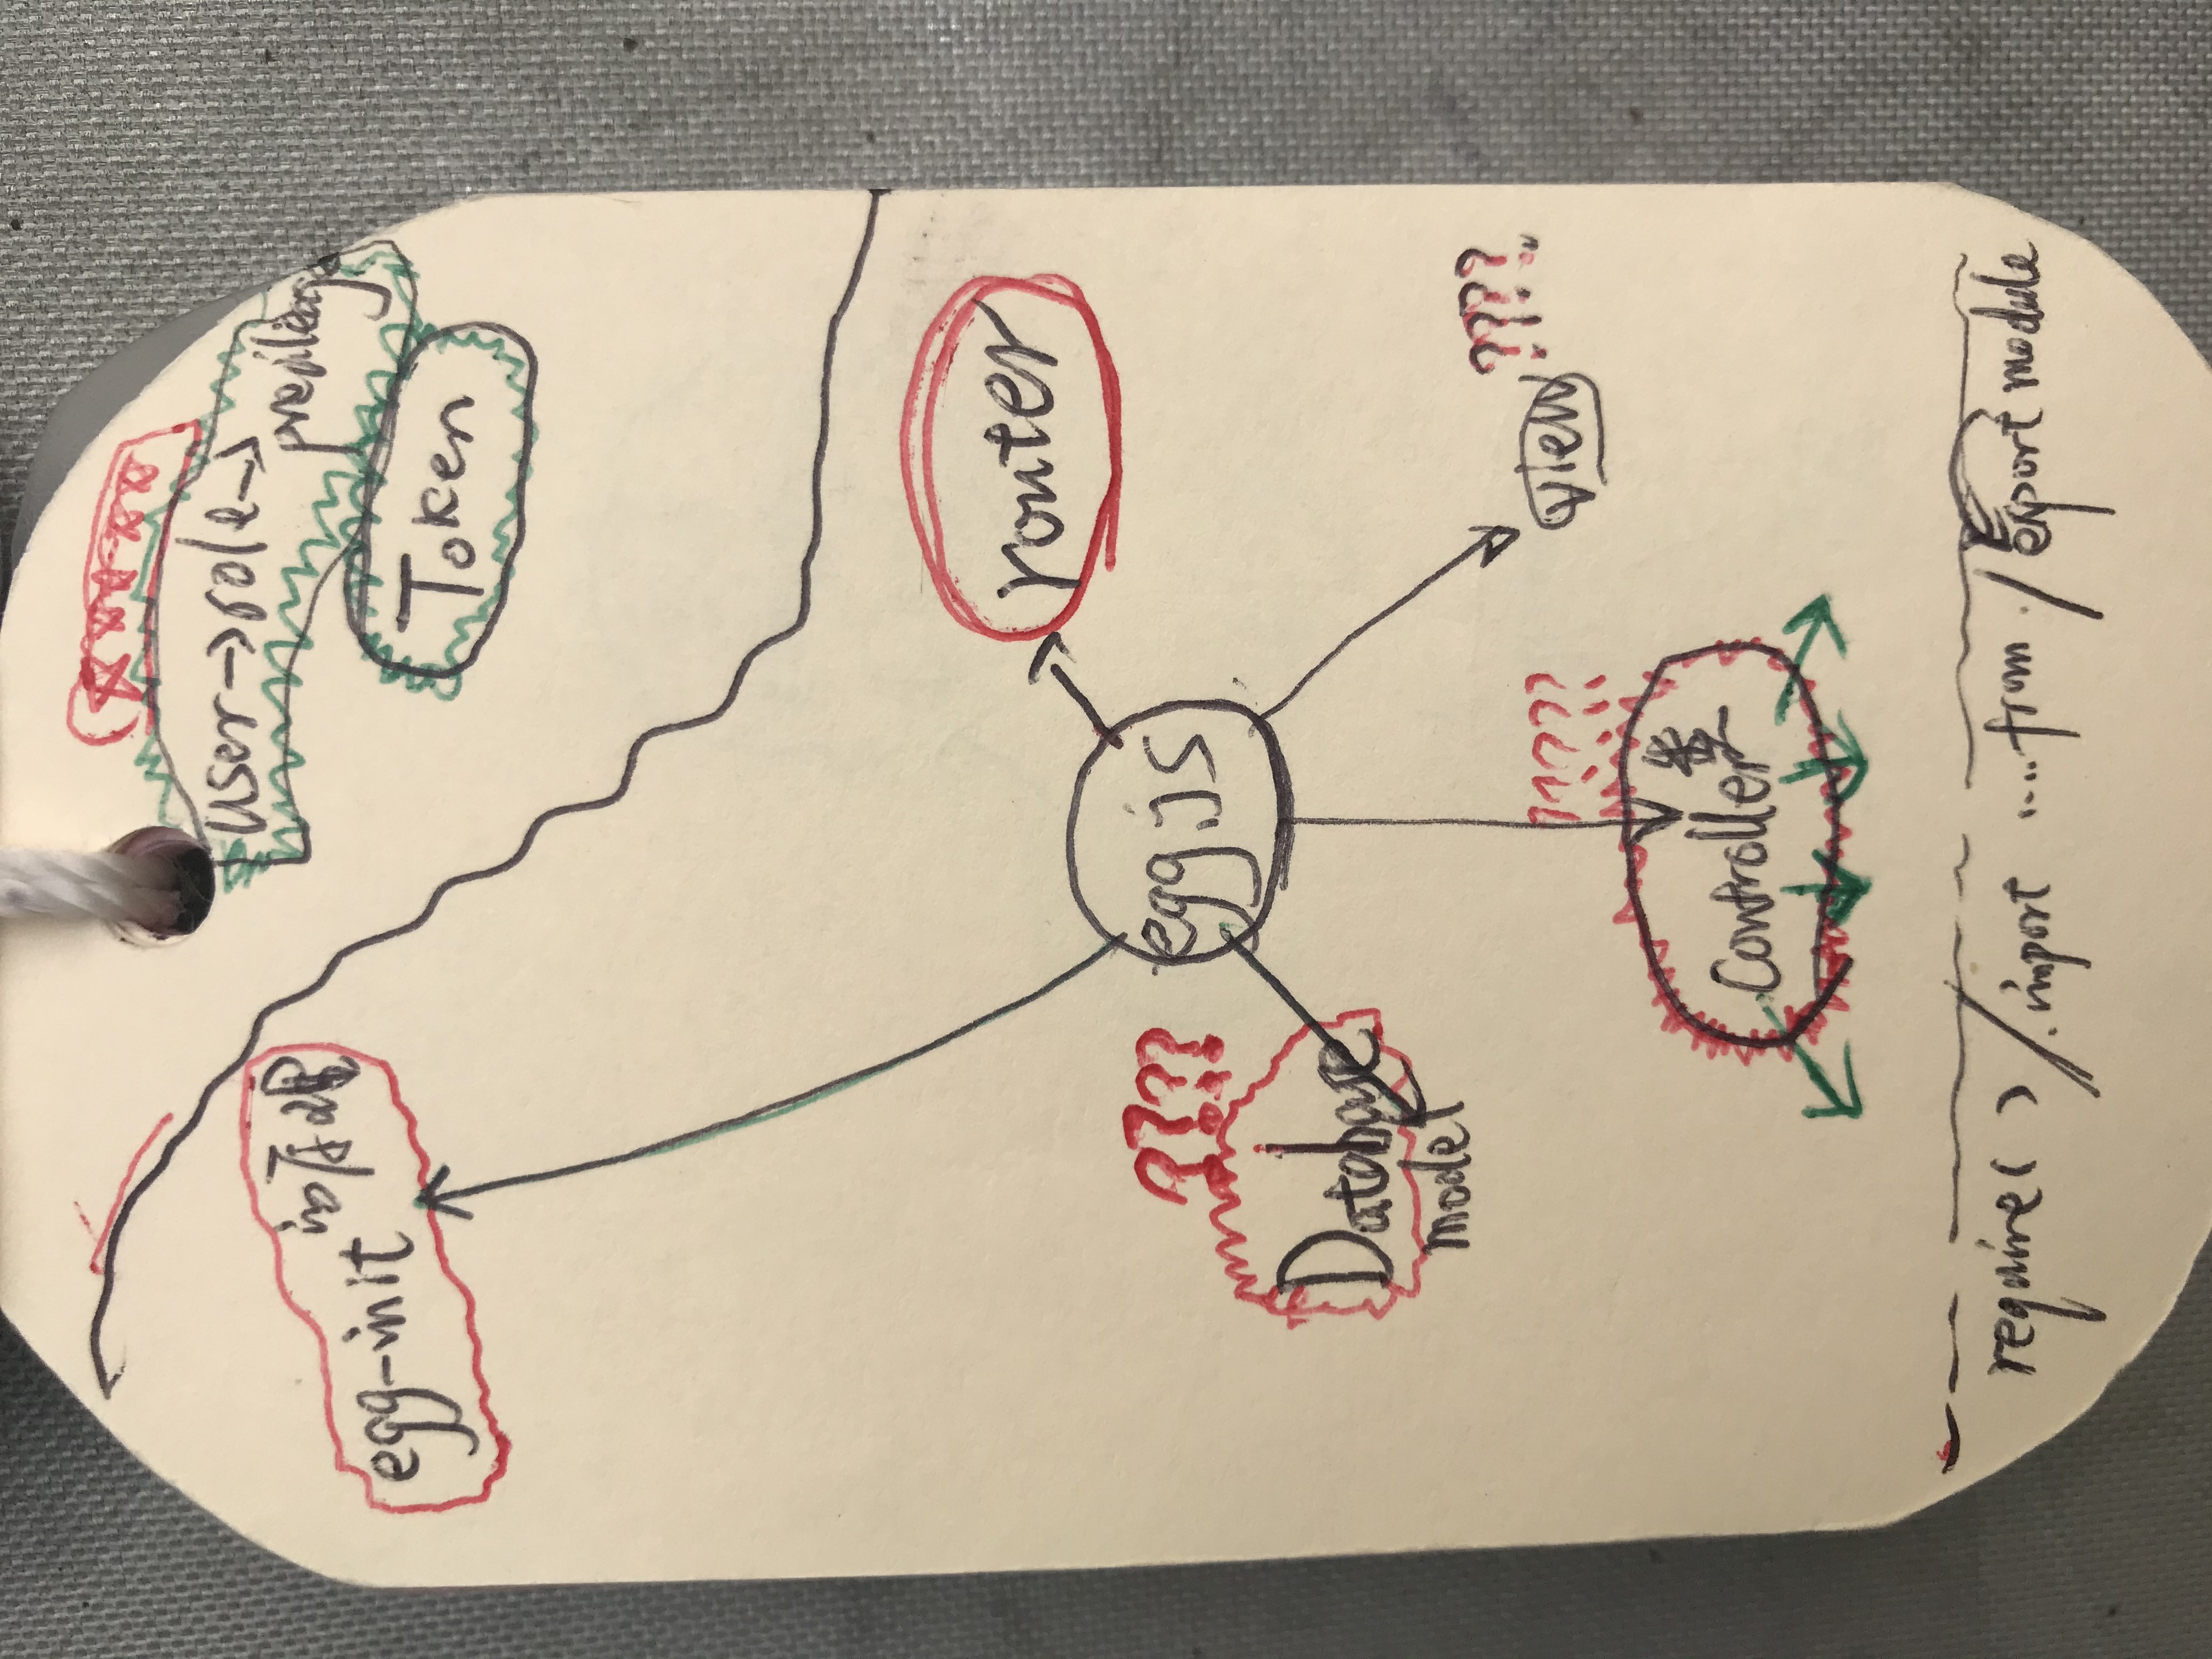 user→role→
previleage
Token
egg-init 的原理
router
eggjs
????
Database
model
????
view
?????
Controller类
require( ) / import ....from / export module